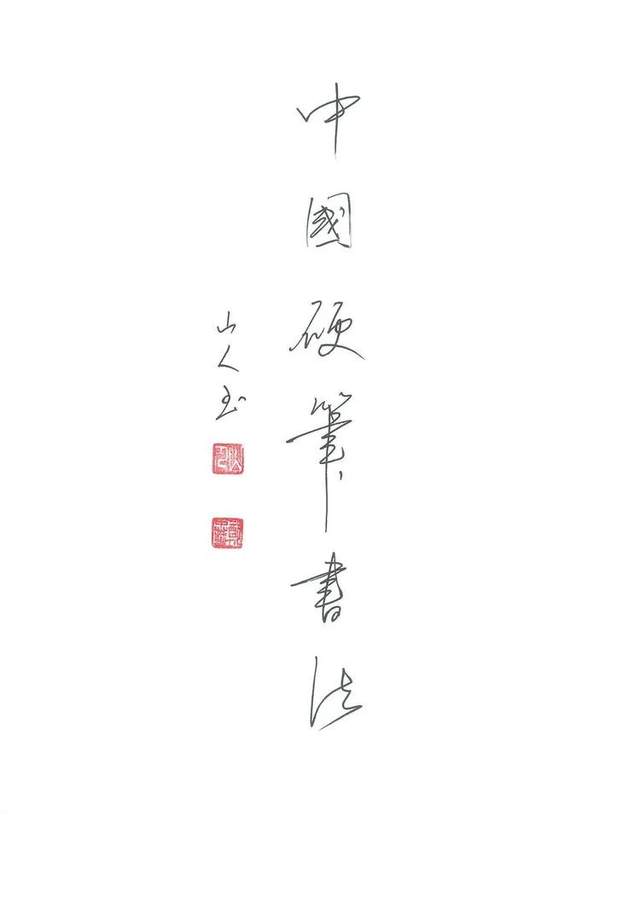 中國硬筆書法
山人玉